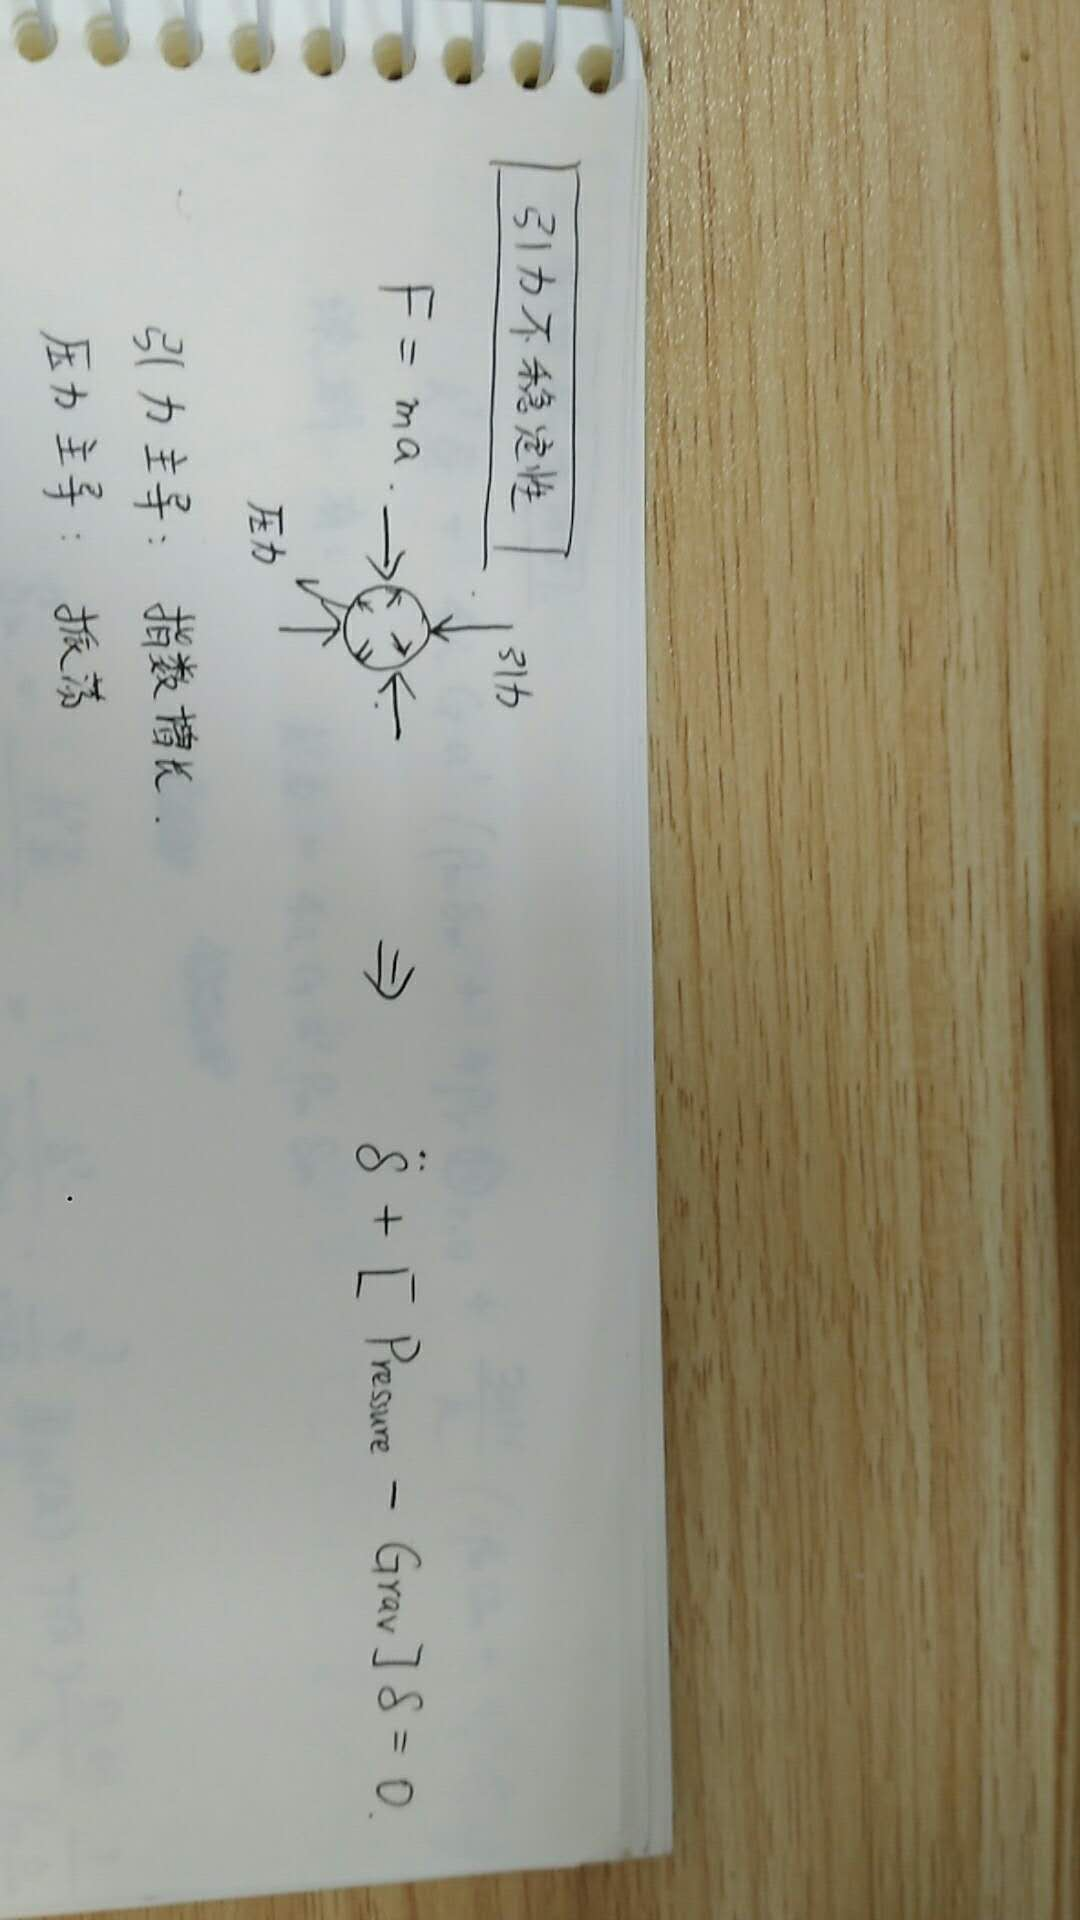 引力不稳定性
引力
F = ma. ⇒ δ̈ + [Pressure - Grav]δ = 0.
压力
引力主导: 指数增长.
压力主导: 振荡